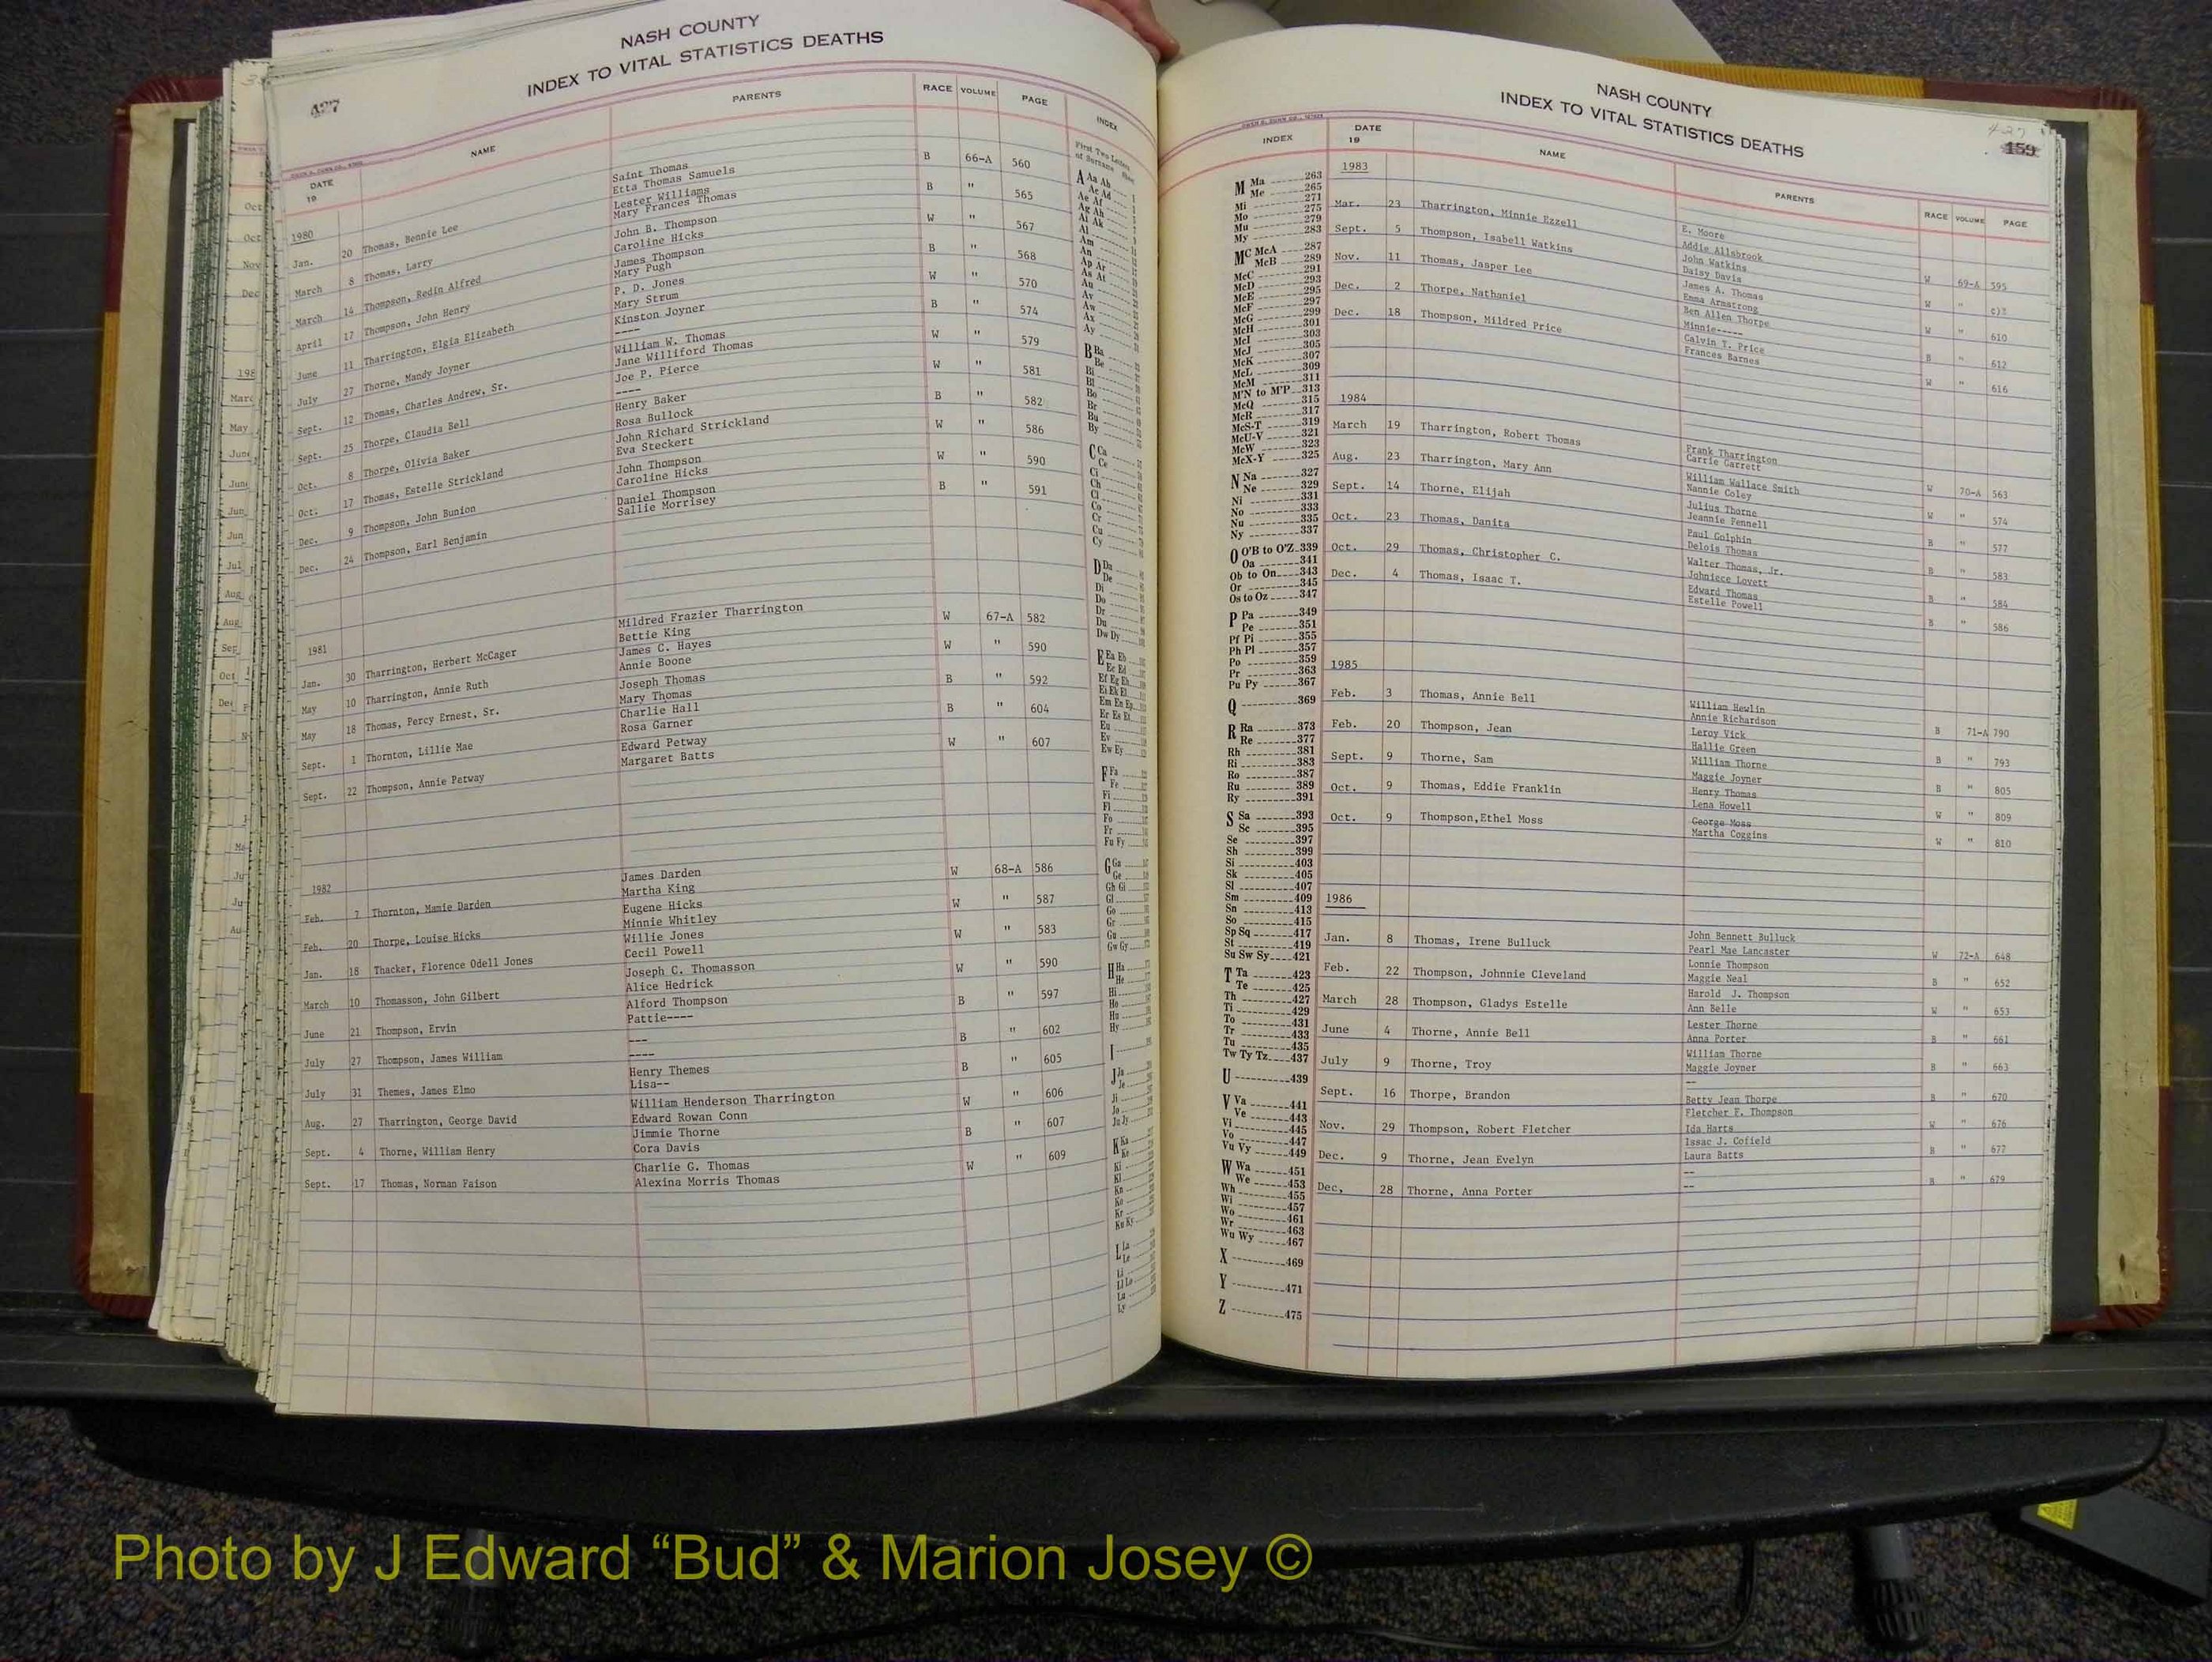 NASH COUNTY
INDEX TO VITAL STATISTICS DEATHS
427
DATE 19 NAME PARENTS RACE VOLUME PAGE INDEX
First Two Letters of Surname
1980
Jan. 20 Thomas, Bennie Lee Saint Thomas B 66-A 560
Etta Thomas Samuels
March 8 Thomas, Larry Lester Williams B " 565
Mary Frances Thomas
March 14 Thompson, Redin Alfred John B. Thompson W " 567
Caroline Hicks
April 17 Thompson, John Henry James Thompson B " 568
Mary Pugh
June 11 Tharrington, Elgia Elizabeth P. D. Jones W " 570
Mary Strum
July 27 Thorne, Mandy Joyner Kinston Joyner B " 574
----
Sept. 12 Thomas, Charles Andrew, Sr. William W. Thomas W " 579
Jane Williford Thomas
Sept. 25 Thorpe, Claudia Bell Joe P. Pierce W " 581
----
Oct. 8 Thorpe, Olivia Baker Henry Baker B " 582
Rosa Bullock
Oct. 17 Thomas, Estelle Strickland John Richard Strickland W " 586
Eva Steckert
Dec. 9 Thompson, John Bunion John Thompson W " 590
Caroline Hicks
Dec. 24 Thompson, Earl Benjamin Daniel Thompson B " 591
Sallie Morrisey
1981
Jan. 30 Tharrington, Herbert McCager Mildred Frazier Tharrington W 67-A 582
Bettie King
May 10 Tharrington, Annie Ruth James C. Hayes W " 590
Annie Boone
May 18 Thomas, Percy Ernest, Sr. Joseph Thomas B " 592
Mary Thomas
Sept. 1 Thornton, Lillie Mae Charlie Hall B " 604
Rosa Garner
Sept. 22 Thompson, Annie Petway Edward Petway W " 607
Margaret Batts
1982
Feb. 7 Thornton, Mamie Darden James Darden W 68-A 586
Martha King
Feb. 20 Thorpe, Louise Hicks Eugene Hicks W " 587
Minnie Whitley
Jan. 18 Thacker, Florence Odell Jones Willie Jones W " 583
Cecil Powell
March 10 Thomasson, John Gilbert Joseph C. Thomasson W " 590
Alice Hedrick
June 21 Thompson, Ervin Alford Thompson B " 597
Pattie----
July 27 Thompson, James William --- B " 602
----
July 31 Themes, James Elmo Henry Themes B " 605
Lisa--
Aug. 27 Tharrington, George David William Henderson Tharrington W " 606
Edward Rowan Conn
Sept. 4 Thorne, William Henry Jimmie Thorne B " 607
Cora Davis
Sept. 17 Thomas, Norman Faison Charlie G. Thomas W " 609
Alexina Morris Thomas
NASH COUNTY
INDEX TO VITAL STATISTICS DEATHS
427
159
INDEX DATE 19 NAME PARENTS RACE VOLUME PAGE
M Ma 263
Me 265
Mi 271
Mo 275
Mu 279
My 283
Mc McA 287
McB 289
McC 291
McD 293
McE 295
McF 297
McG 299
McH 301
McI 303
McJ 305
McK 307
McL 309
McM 311
M'N to M'P 313
McQ 315
McR 317
McS-T 319
McU-V 321
McW 323
McX-Y 325
N Na 327
Ne 329
Ni 331
No 333
Nu 335
Ny 337
O O'B to O'Z 339
Oa 341
Ob to On 343
Or 345
Os to Oz 347
P Pa 349
Pe 351
Pf Pi 355
Ph Pl 357
Po 359
Pr 363
Pu Py 367
Q 369
R Ra 373
Re 377
Rh 381
Ri 383
Ro 387
Ru 389
Ry 391
S Sa 393
Sc 395
Se 397
Sh 399
Si 403
Sk 405
Sl 407
Sm 409
Sn 413
So 415
Sp Sq 417
St 419
Su Sw Sy 421
T Ta 423
Te 425
Th 427
Ti 429
To 431
Tr 433
Tu 435
Tw Ty Tz 437
U 439
V Va 441
Ve 443
Vi 445
Vo 447
Vu Vy 449
W Wa 451
We 453
Wh 455
Wi 457
Wo 461
Wr 463
Wu Wy 467
X 469
Y 471
Z 475
1983
Mar. 23 Tharrington, Minnie Ezzell E. Moore W 69-A 595
Addie Allsbrook
Sept. 5 Thompson, Isabell Watkins John Watkins W "
Daisy Davis
Nov. 11 Thomas, Jasper Lee James A. Thomas W " 610
Emma Armstrong
Dec. 2 Thorpe, Nathaniel Ben Allen Thorpe B " 612
Minnie-----
Dec. 18 Thompson, Mildred Price Calvin T. Price W " 616
Frances Barnes
1984
March 19 Tharrington, Robert Thomas Frank Tharrington W 70-A 563
Carrie Garrett
Aug. 23 Tharrington, Mary Ann William Wallace Smith W " 574
Nannie Coley
Sept. 14 Thorne, Elijah Julius Thorne B " 577
Jeannie Fennell
Oct. 23 Thomas, Danita Paul Golphin B " 583
Delois Thomas
Oct. 29 Thomas, Christopher C. Walter Thomas, Jr. B " 584
Johniece Lovett
Dec. 4 Thomas, Isaac T. Edward Thomas B " 586
Estelle Powell
1985
Feb. 3 Thomas, Annie Bell William Hewlin B 71-A 790
Annie Richardson
Feb. 20 Thompson, Jean Leroy Vick B " 793
Hallie Green
Sept. 9 Thorne, Sam William Thorne B " 805
Maggie Joyner
Oct. 9 Thomas, Eddie Franklin Henry Thomas W " 809
Lena Howell
Oct. 9 Thompson,Ethel Moss George Moss W " 810
Martha Coggins
1986
Jan. 8 Thomas, Irene Bulluck John Bennett Bulluck W 72-A 648
Pearl Mae Lancaster
Feb. 22 Thompson, Johnnie Cleveland Lonnie Thompson B " 652
Maggie Neal
March 28 Thompson, Gladys Estelle Harold J. Thompson W " 653
Ann Belle
June 4 Thorne, Annie Bell Lester Thorne B " 661
Anna Porter
July 9 Thorne, Troy William Thorne B " 663
Maggie Joyner
Sept. 16 Thorpe, Brandon -- B " 670
Betty Jean Thorpe
Nov. 29 Thompson, Robert Fletcher Fletcher F. Thompson W " 676
Ida Harts
Dec. 9 Thorne, Jean Evelyn Issac J. Cofield B " 677
Laura Batts
Dec, 28 Thorne, Anna Porter -- B " 679
--
Photo by J Edward “Bud” & Marion Josey ©